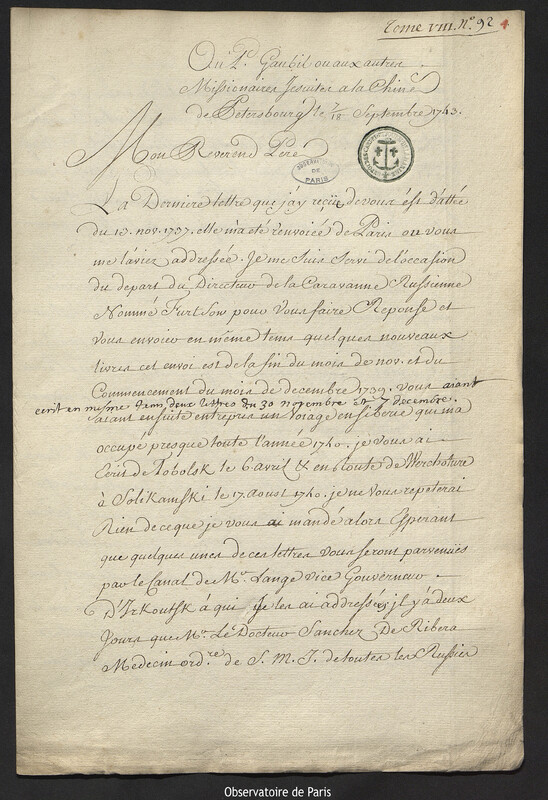 Tome VIII. N.º 92 4
Au P.e Gaubil ou aux autres
Missionaires Jesuites a la Chine
de Petersbourg le 7/18 Septembre 1743.
Mon Reverend Pere
OBSERVATOIRE
DE
PARIS
La Derniere lettre que j'ay reçüe de vous est d'attée
du 13. nov. 1737. elle m'a été renvoiée de Paris ou vous
me l'aviez addressée. Je me suis servi de l'occasion
du depart du Directeur de la Caravanne Russienne
Nommé Fürtsow pour vous faire Reponse et
vous envoier en même tems quelques nouveaux
livres cet envoi est de la fin du mois de nov. et du
Commencement du mois de decembre 1739. vous aiant
ecrit en mesme tems deux lettres du 30 novembre et 7 decembre.
aiant ensuite entrepris un voiage en Siberie qui m'a
occupé presque toute l'année 1740. je vous ai
Ecrit de Tobolsk le 6. avril & en Route de Werchoture
à Solikamski le 17. aoust 1740. je ne vous repeterai
Rien de ce que je vous ai mandé alors Esperant
que quelques unes de ces lettres vous seront parvenües
par le Canal de Mr. Lange vice Gouverneur
D'Irkoutsk à qui Je les ai addressées; il y a deux
Jours que Mr. Le Docteur Sanchez De Ribera
Medecin ord.re de S. M. I. de toutes les Russies
Observatoire de Paris